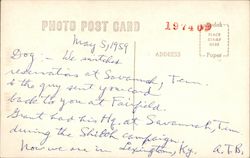 PHOTO POST CARD
197409
Kodak
PLACE
STAMP
HERE
Paper
May 5, 1959
ADDRESS
Dog: - We switched
reservations at Savannah, Tenn.
& the guy sent your card
back to you at Fairfield.
Grant had his Hq. at Savannah, Tenn
during the Shiloh campaign.
Now we are in Lexington, Ky. A.T.B.